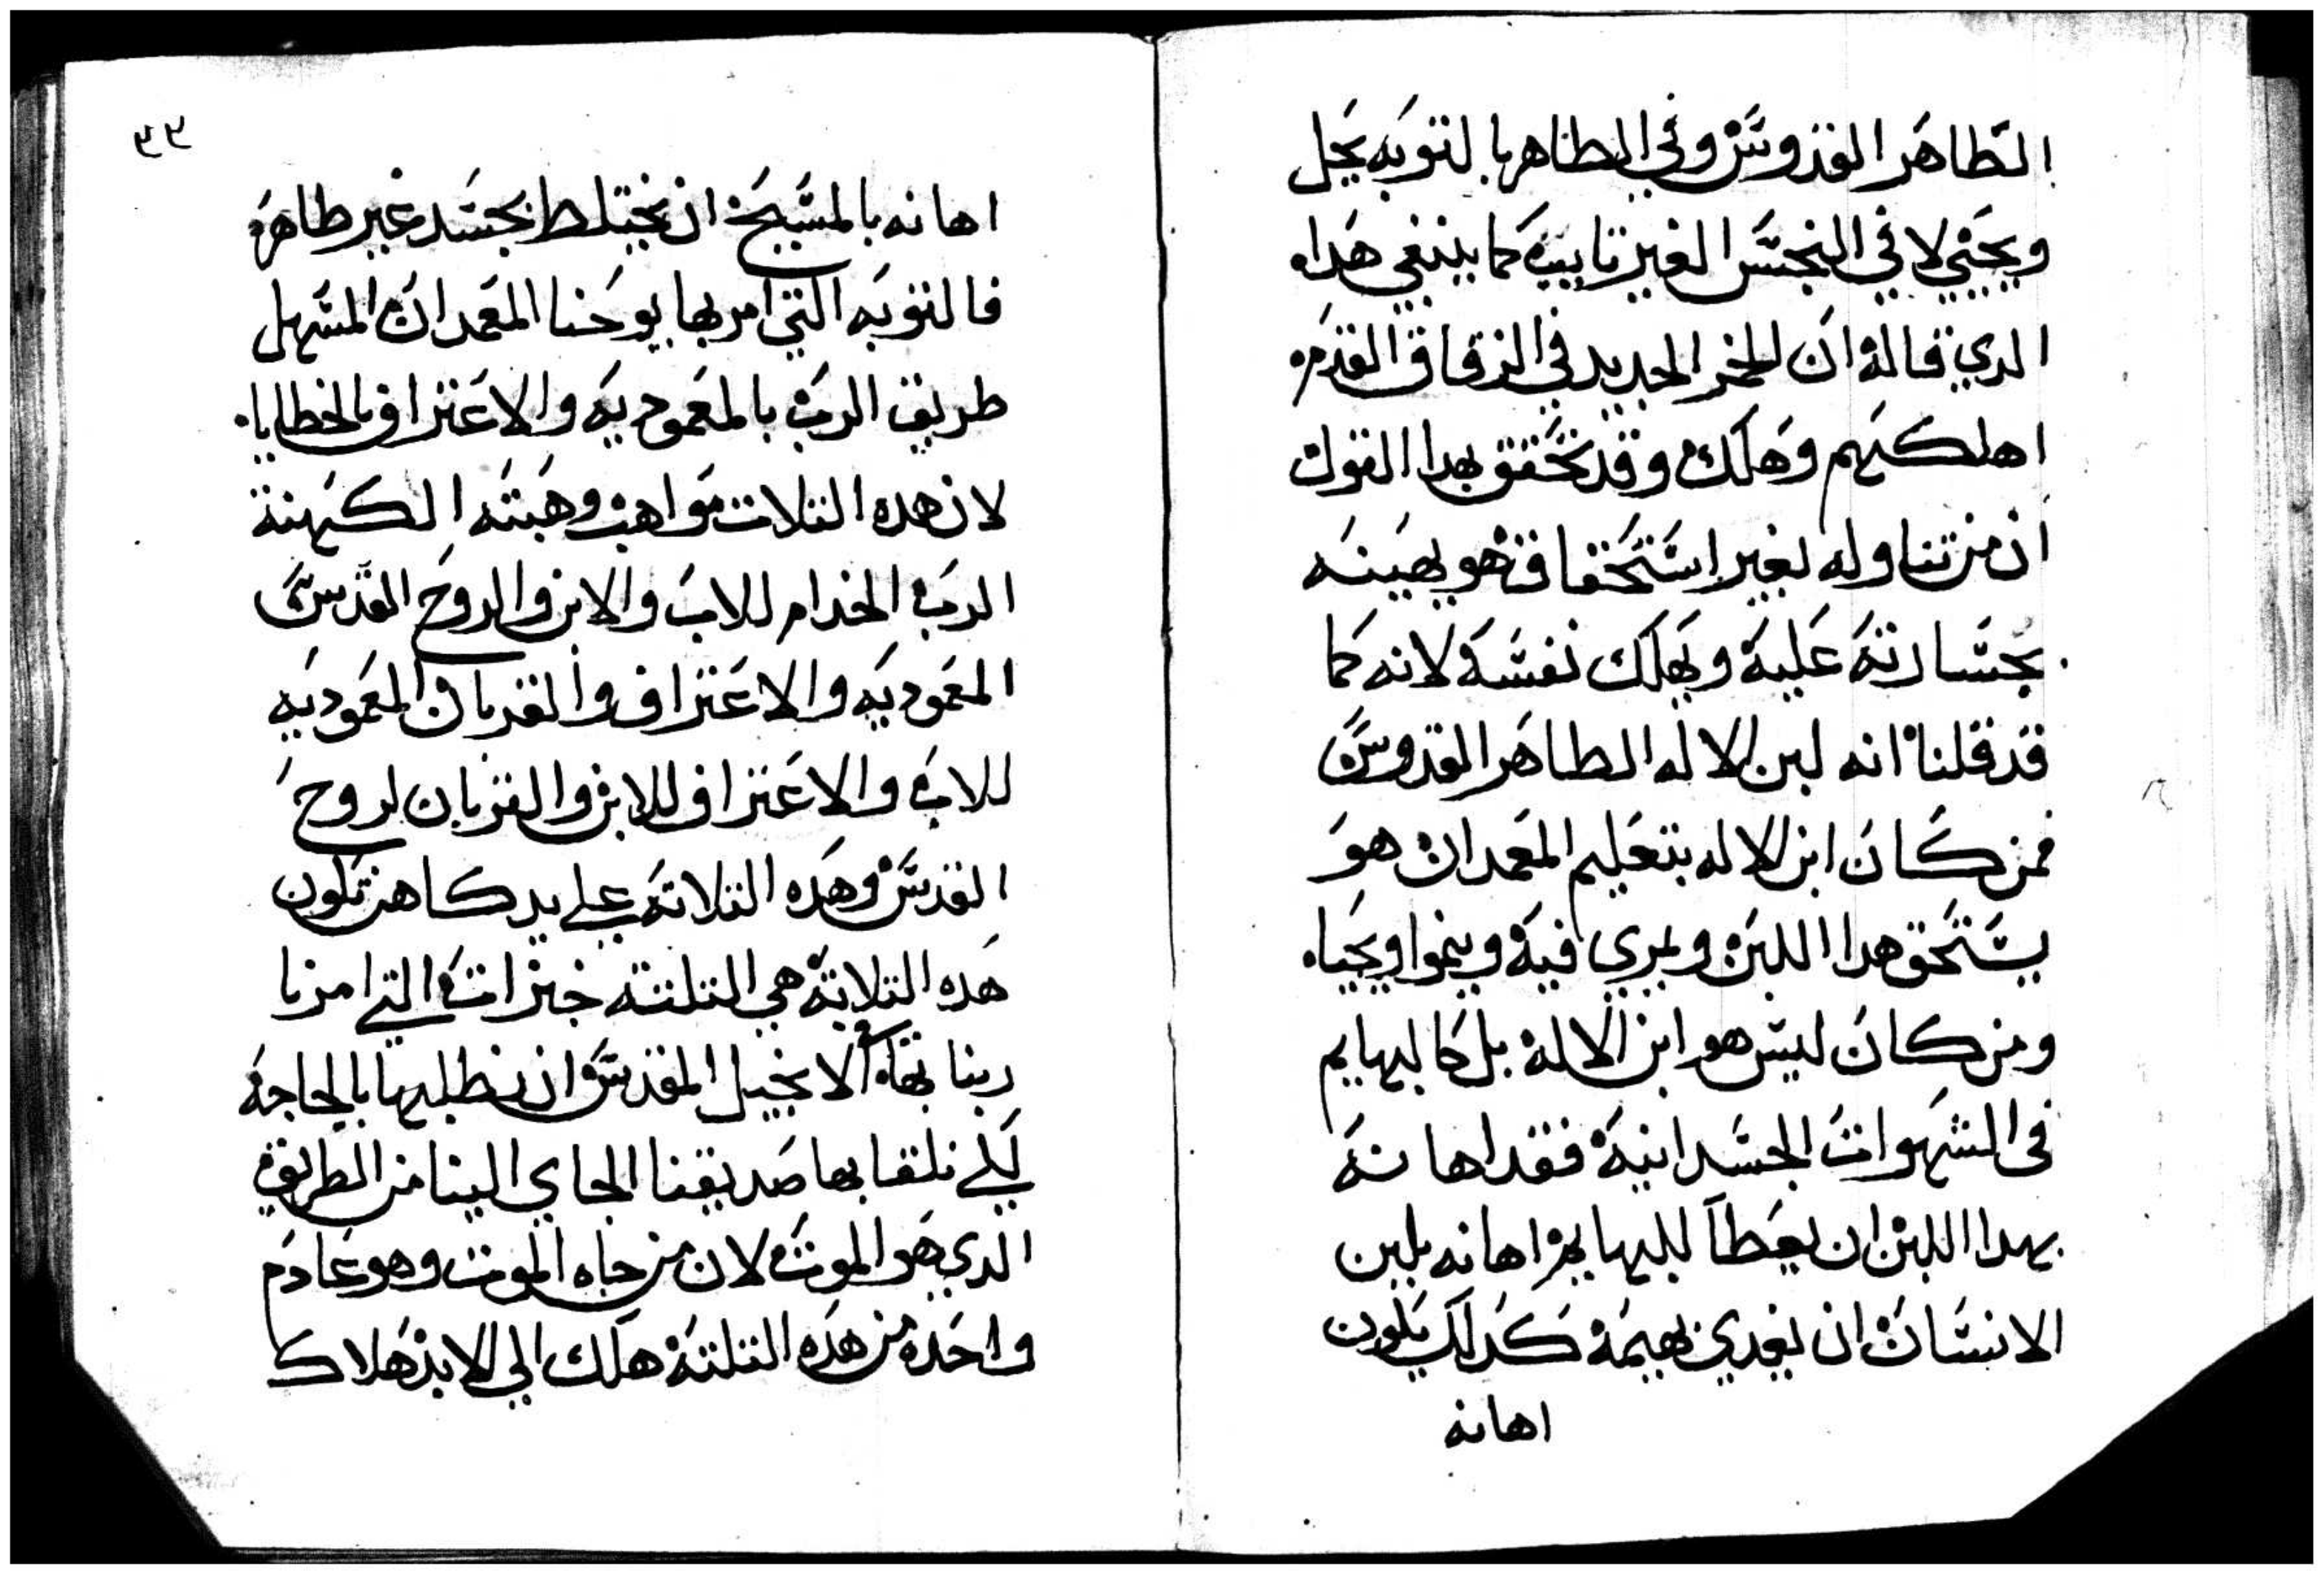 الطاهر القدوس وفي الطاهر بالتوبه يحل
ويحيي لا في النجس الغير تايب كما ينبغي هداه
الدي قاله ان الخمر الجديد في الزقاق القدمه
اهلكهم وهلك وقد تحقق بهدا القول
ان من تناوله بغير استحقاق فهو يهينه
بجسارته عليه ويهلك نفسه لانه كما
قد قلنا انه لبن الاله الطاهر القدوس
فمن كان ابن الاله بتعليم المعمدان هو
يستحق هدا اللبن ويربي فيه وينموا ويحيا
ومن كان ليس هو ابن الاله بل كالبهايم
في الشهوات الجسدانية فقد اهانه
بهدا اللبن ان يعطا للبهايم اهانه بلبن
الانسان ان يغدي بهيمه كدلك يكون
اهانه
٣٣
اهانه بالمسيح ان يختلط بجسد غير طاهره
فالتوبه التي امر بها يوحنا المعمدان المسهل
طريق الرب بالمعموديه والاعتراف بالخطايا
لان هده التلات مواهب وهبته الكهنة
الرب الخدام للاب والابن والروح القدس
المعموديه والاعتراف والقربان المعموديه
للاب والاعتراف للابن والقربان لروح
القدس وهده التلاته علي يد كاهن تكون
هده التلاتة هي التلتة خبزات التي امرنا
ربنا بها في الانجيل المقدس ان نطلبها بالحاجة
لكي نلقا بها صديقنا الجاي الينا من الطريق
الدي هو الموت لان من جاه الموت وهو عادم
واحده من هده التلتة هلك الي الابد هلاك